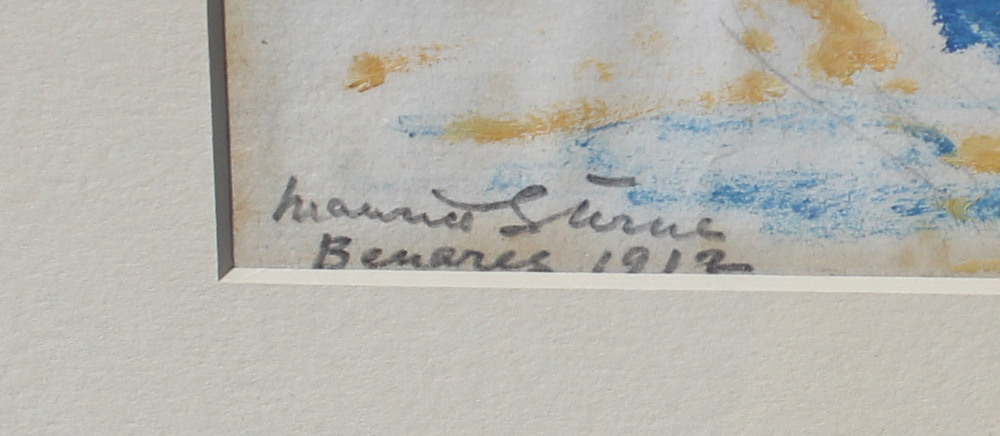 Maurice Sterne
Benares 1912